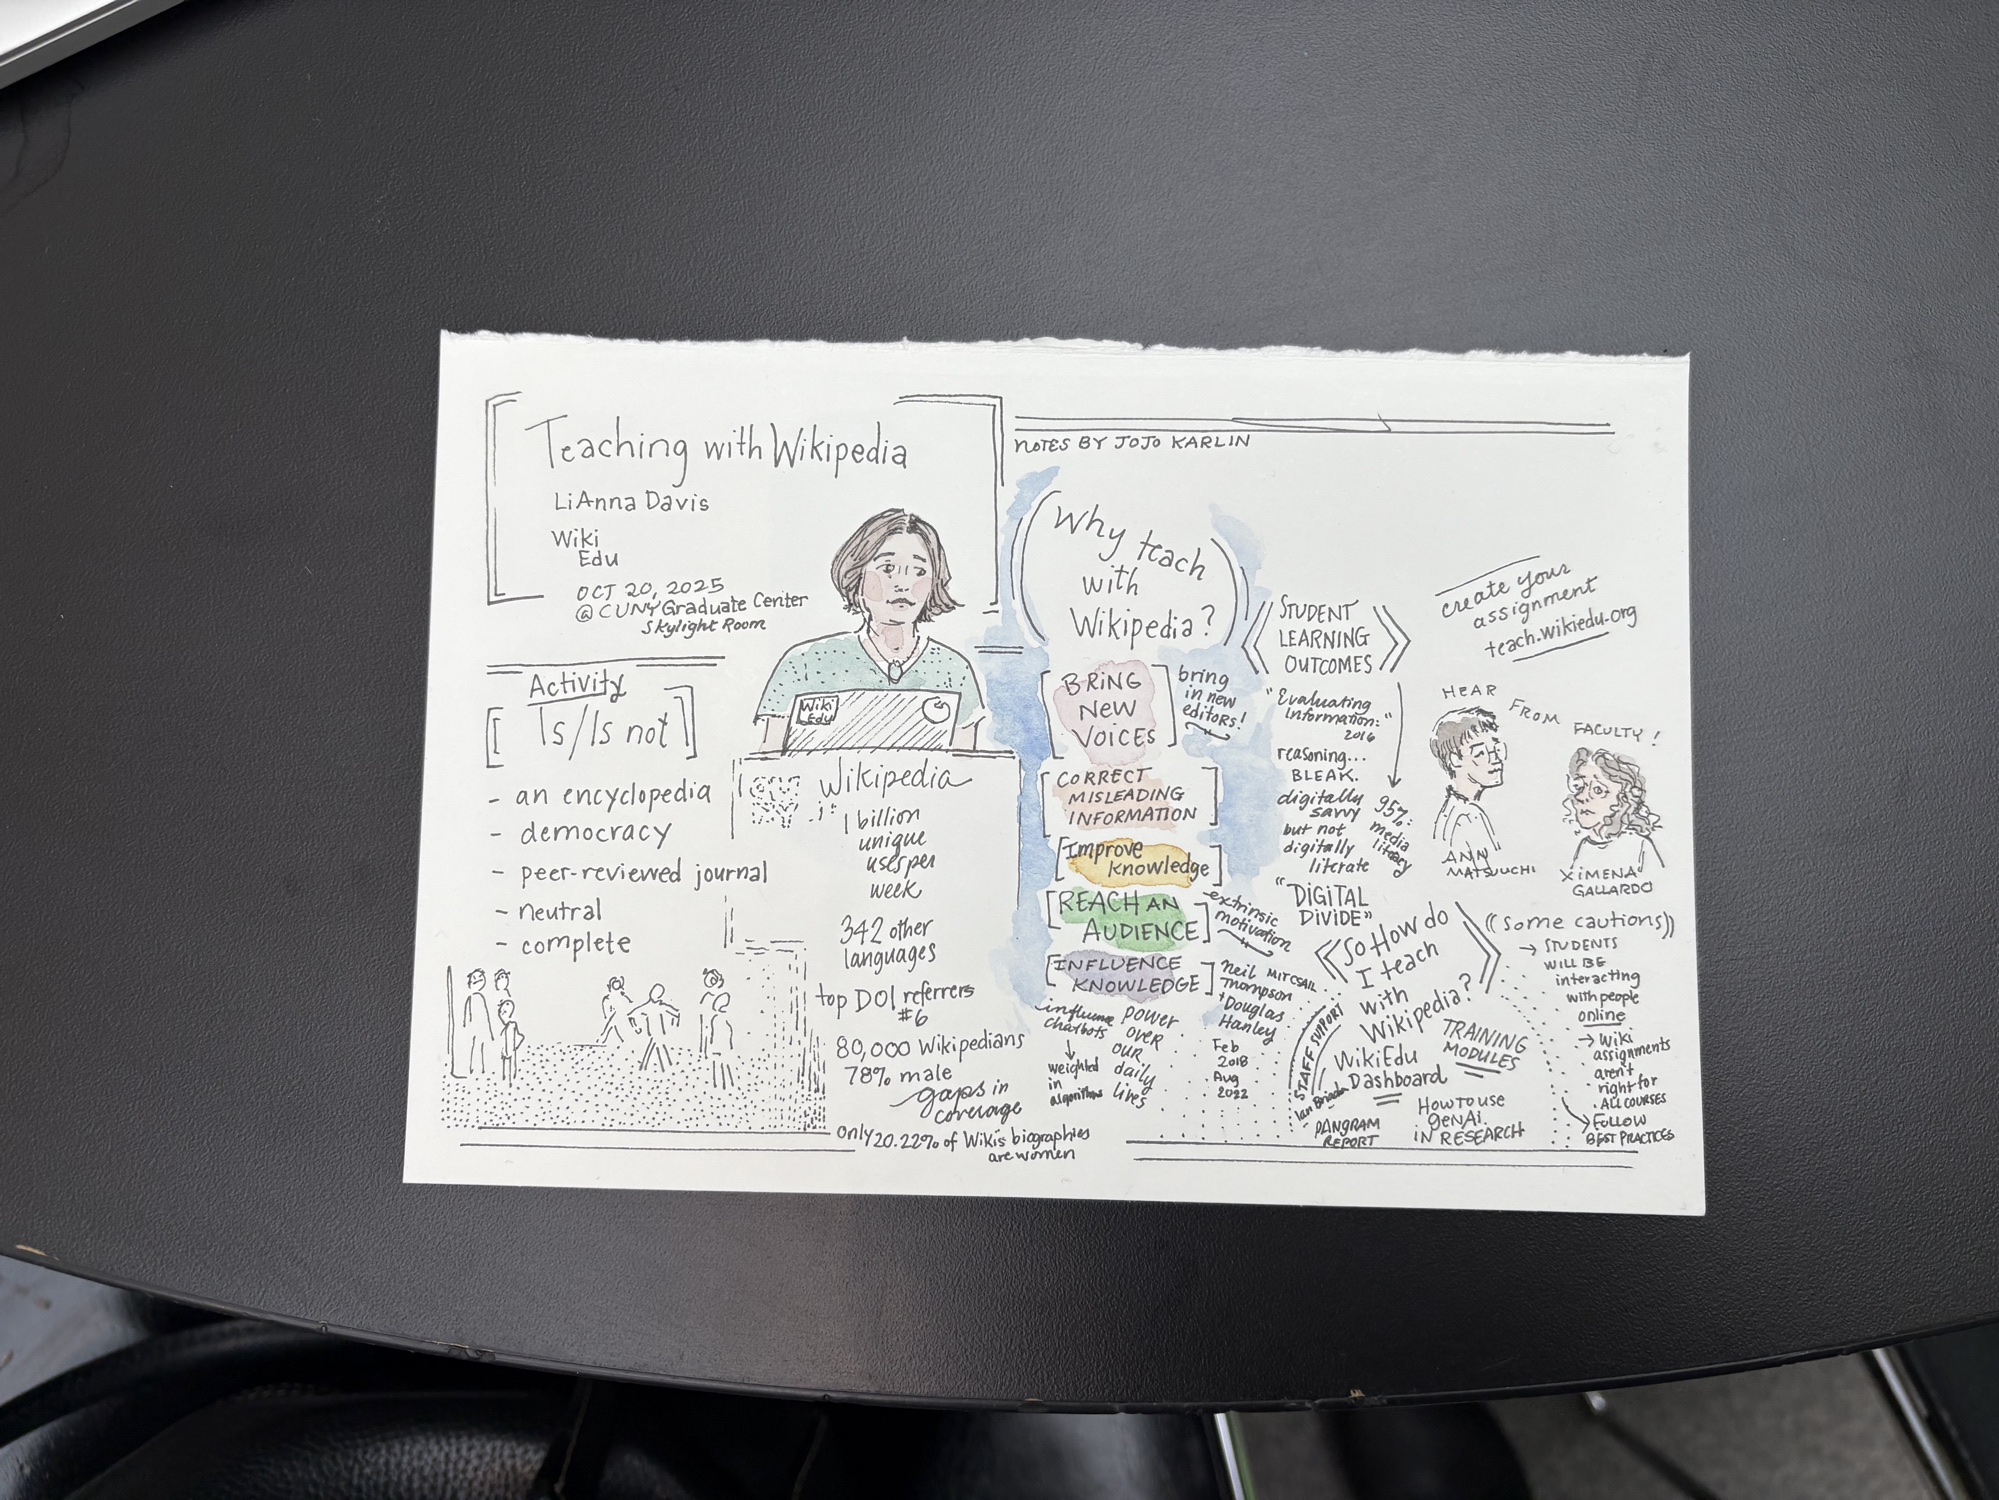 Teaching with Wikipedia
LiAnna Davis
Wiki
Edu
OCT 20, 2025
@ CUNY Graduate Center
Skylight Room
Activity
[Is/Is not]
- an encyclopedia
- democracy
- peer-reviewed journal
- neutral
- complete
Wiki
Edu
Wikipedia
1 billion
unique
uses per
week
342 other
languages
top DOI referrers
#6
80,000 Wikipedians
78% male
gaps in
coverage
only 20.22% of Wiki's biographies
are women
NOTES BY JOJO KARLIN
(Why teach
with
Wikipedia?)
[BRING
NEW
VOICES]
bring
in new
editors!
[CORRECT
MISLEADING
INFORMATION]
[Improve
Knowledge]
[REACH AN
AUDIENCE]
extrinsic
motivation
[INFLUENCE
KNOWLEDGE]
influence
chatbots
↓
weighted
in
algorithms
power
over
our
daily
lives
Neil
Thompson
+ Douglas
Hanley
Feb
2018
Aug
2022
STUDENT
LEARNING
OUTCOMES
"Evaluating
Information:"
2016
reasoning...
BLEAK.
digitally
savvy
but not
digitally
literate
95%:
media
literacy
"DIGITAL
DIVIDE"
create your
assignment
teach.wikiedu.org
HEAR
FROM
FACULTY!
ANN
MATSUUCHI
XIMENA
GALLARDO
So How do
I teach
with
Wikipedia?
STAFF SUPPORT
WikiEdu
Dashboard
TRAINING
MODULES
PANGRAM
REPORT
HOW TO USE
GENAI
IN RESEARCH
((some cautions))
→ STUDENTS
WILL BE
interacting
with people
online
→ Wiki
assignments
aren't
right for
ALL COURSES
→ FOLLOW
BEST PRACTICES